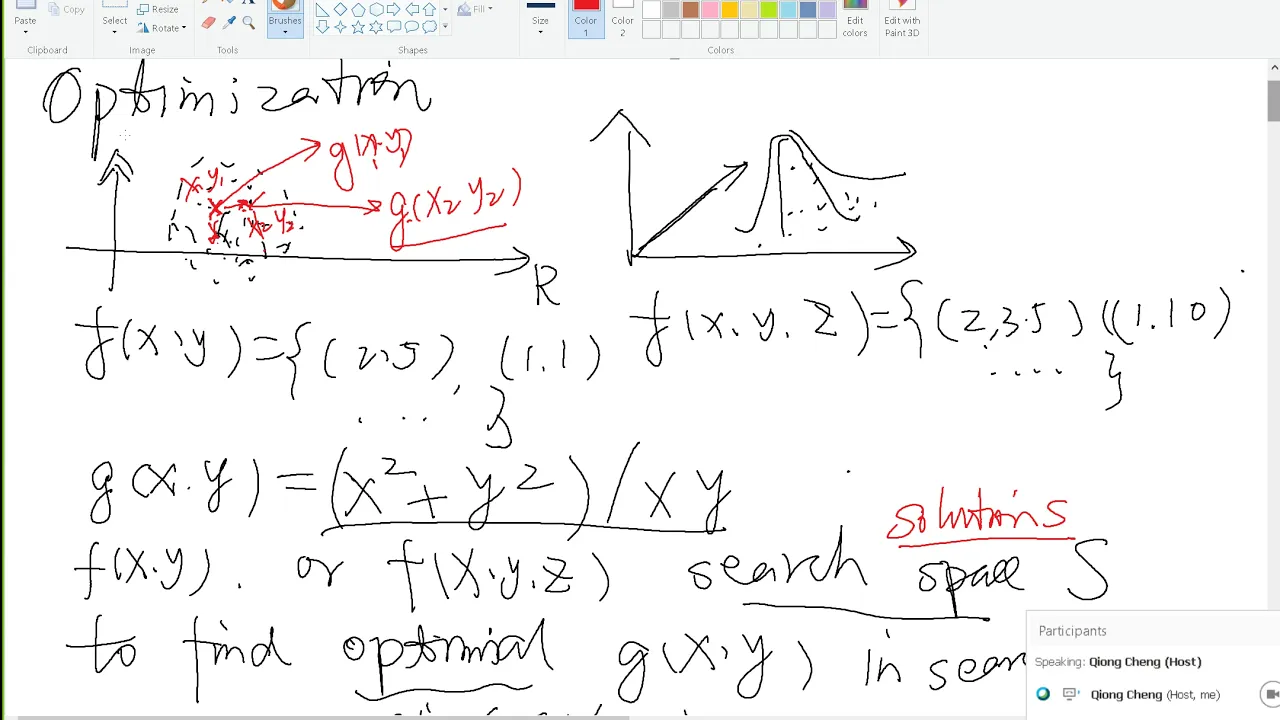 Paste
Copy
Select
Resize
Rotate
Brushes
Fill
Size
Color 1
Color 2
Edit colors
Edit with Paint 3D
Clipboard
Image
Tools
Shapes
Colors
Optimization
g(x1 y1)
x1 y1
g(x2 y2)
x2 y2
R
f(x,y)={(2,5), (1.1)
.... }
f(x,y,z)={(2,3.5) ((1.10)
.... }
g(x.y)=(x²+y²)/xy
solutions
f(x.y). or f(x.y.z) search space S
to find optimial g(x,y) in sear
Participants
Speaking: Qiong Cheng (Host)
Qiong Cheng (Host, me)